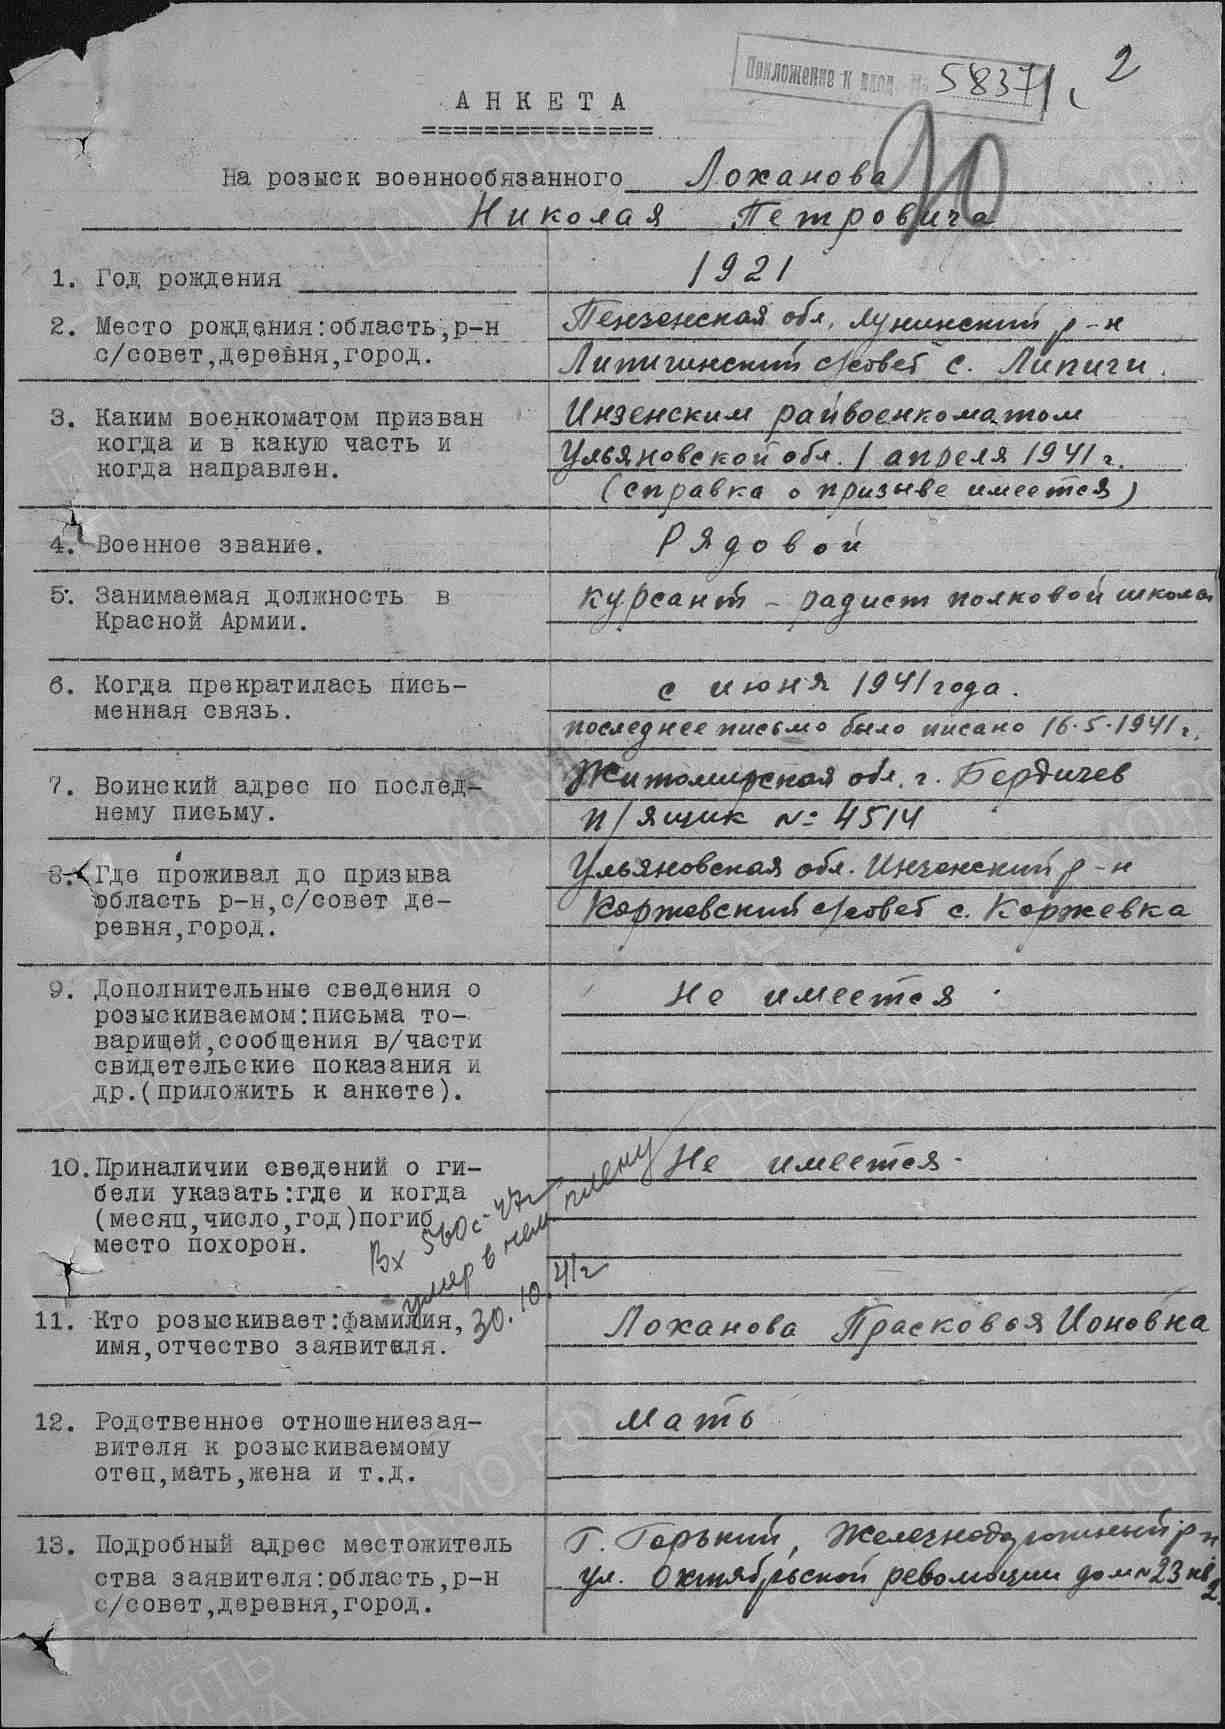 Приложение к вход. № 58371
2
АНКЕТА
На розыск военнообязанного Лоханова
Николая Петровича
1. Год рождения 1921
2. Место рождения:область,р-н Пензенская обл, Лунинский р-н
с/совет,деревня,город. Липигинский с/совет с. Липиги.
3. Каким военкоматом призван Инзенским райвоенкоматом
когда и в какую часть и Ульяновской обл. 1 апреля 1941 г.
когда направлен. (справка о призыве имеется)
4. Военное звание. Рядовой
5. Занимаемая должность в курсант - радист полковой школы
Красной Армии.
6. Когда прекратилась пись- с июня 1941 года.
менная связь. последнее письмо было писано 16.5.1941 г.
7. Воинский адрес по послед- Житомирская обл. г. Бердичев
нему письму. п/ящик № 4514
8. Где проживал до призыва Ульяновская обл. Инзенский р-н
область р-н,с/совет де- Коржевский с/совет с. Коржевка
ревня,город.
9. Дополнительные сведения о Не имеется.
розыскиваемом:письма то-
варищей,сообщения в/части
свидетельские показания и
др.(приложить к анкете).
10. Приналичии сведений о ги- Не имеется.
бели указать:где и когда
(месяц,число,год)погиб
место похорон.
Вх 560с-47г
умер в нем плену
30.10.41г
11. Кто розыскивает:фамилия, Лоханова Прасковья Ионовна
имя,отчество заявителя.
12. Родственное отношениезая- Мать
вителя к розыскиваемому
отец,мать,жена и т.д.
13. Подробный адрес местожитель г. Горький, Железнодорожный р-н
ства заявителя:область,р-н ул. Октябрьской революции дом № 23 кв 2.
с/совет,деревня,город.